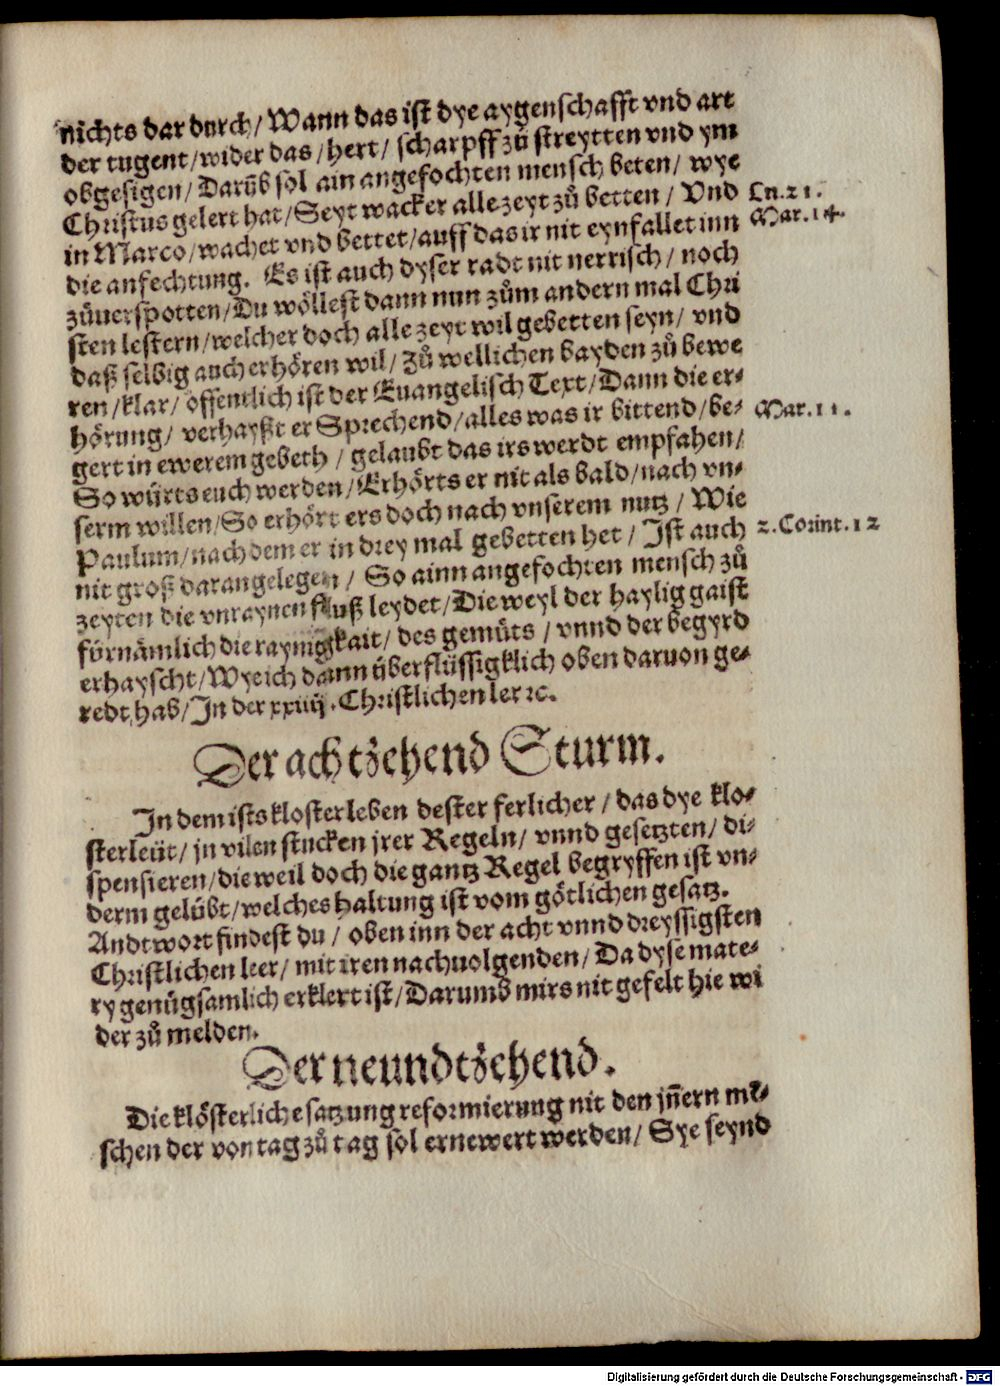 nichts dar durch/ Wann das ist dye aygenschafft vnd art
der tugent/wider das/hert/ scharpff zů streytten vnd ym
obgesigen/ Darūb sol ain angefochten mensch beten/ wye
Christus gelert hat/ Seyt wacker alle zeyt zů betten/ Vnd
Lu. 21.
in Marco/wachet vnd bettet/auff das ir nit eynfallet inn
Mar. 14.
die anfechtung. Es ist auch dyser radt nit nerrisch/ noch
zůuerspotten/Du wöllest dann nun zům andern mal Chri
sten lestern/welcher doch alle zeyt wil gebetten seyn/ vnd
daß selbig auch erhören wil/ Zů wellichen bayden zů bewe
ren/klar/ öffentlich ist der Euangelisch Text/Dann die er-
hörung/ verhayßt er Sprechend/alles was ir bittend/be-
Mar. 11.
gert in ewerem gebeth / gelaubt das irs werdt empfahen/
So würts euch werden/Erhörts er nit als bald/nach vn-
serm willen/So erhört ers doch nach vnserem nutz/ Wie
Paulum/nach dem er in drey mal gebetten het/ Ist auch
2. Corint. 12
nit groß daran gelegen/ So ainn angefochten mensch zů
zeyten die vnraynen fluß leydet/Die weyl der haylig gaist
fürnämlich die raynigkait/ des gemüts / vnnd der begyrd
erhayscht/Wye ich dann überflüssigklich oben daruon ge-
redt hab/In der xxiiij. Christlichen ler ꝛc.
Der achtzehend Sturm.
In dem ists klosterleben dester ferlicher/ das dye klo-
sterleüt/ in vilen stucken jrer Regeln/ vnnd gesetzten/ di-
spensieren/die weil doch die gantz Regel begryffen ist vn-
derm gelübt/welches haltung ist vom götlichen gesatz.
Andtwort findest du/ oben inn der acht vnnd dreyssigsten
Christlichen leer/ mit iren nachuolgenden/ Da dyse mate-
ry genügsamlich erklert ist/Darumb mirs nit gefelt hie wi
der zů melden.
Der neundtzehend.
Die klösterliche satzung reformierung nit den jn̄ern mē-
schen der von tag zů tag sol ernewert werden/ Sye seynd
Digitalisierung gefördert durch die Deutsche Forschungsgemeinschaft - DFG